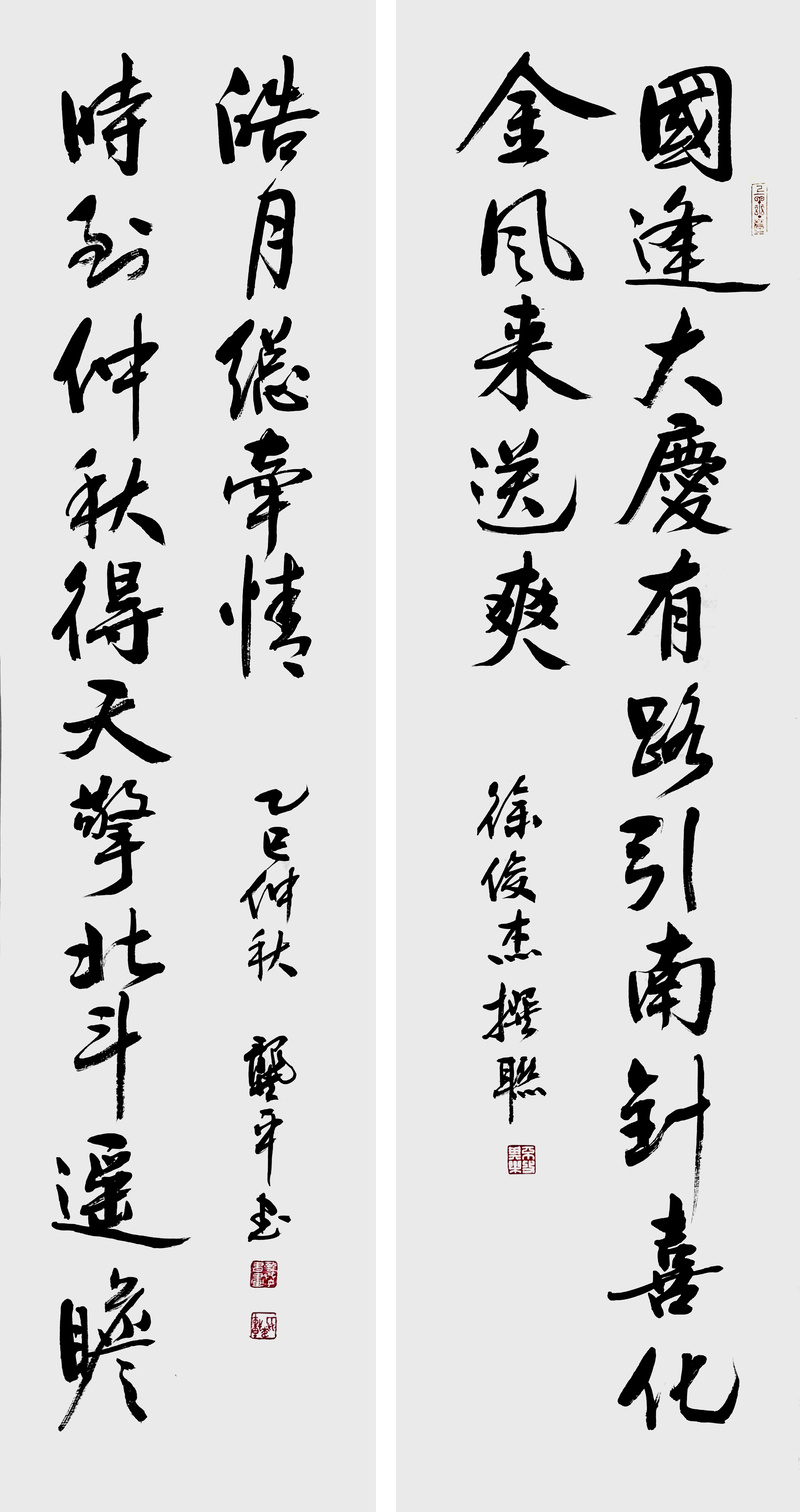 國逢大慶有路引南針喜化
金風来送爽
徐俊杰撰聯
時到仲秋得天擎北斗遥瞻
皓月總牽情
乙巳仲秋 龔平书